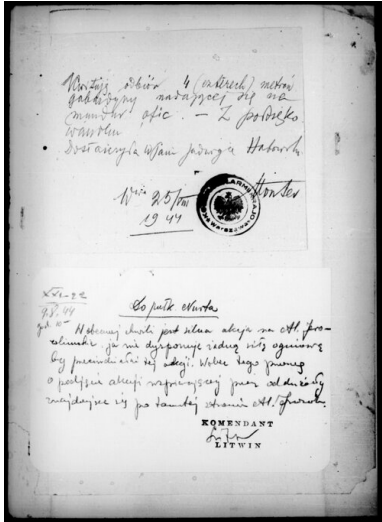 Kwituję odbiór 4 (czterech) metrów
gabardyny nadającej się na
mundur ofic. — Z podzięko
waniem
Dostarczyła W.Pani Jadwiga
W-wa 25/VIII
1944
Monter
XXI-22
9.8.44
godz. 10
Do płk. Nurta
W obecnej chwili jest silna akcja na Al.
ja nie dysponuję żadną siłą ogniową
by przeciwdziałać tej akcji. Wobec tego proszę
o podjęcie akcji wspierającej przez oddziały
znajdujące się po tamtej stronie Al.
KOMENDANT
LITWIN